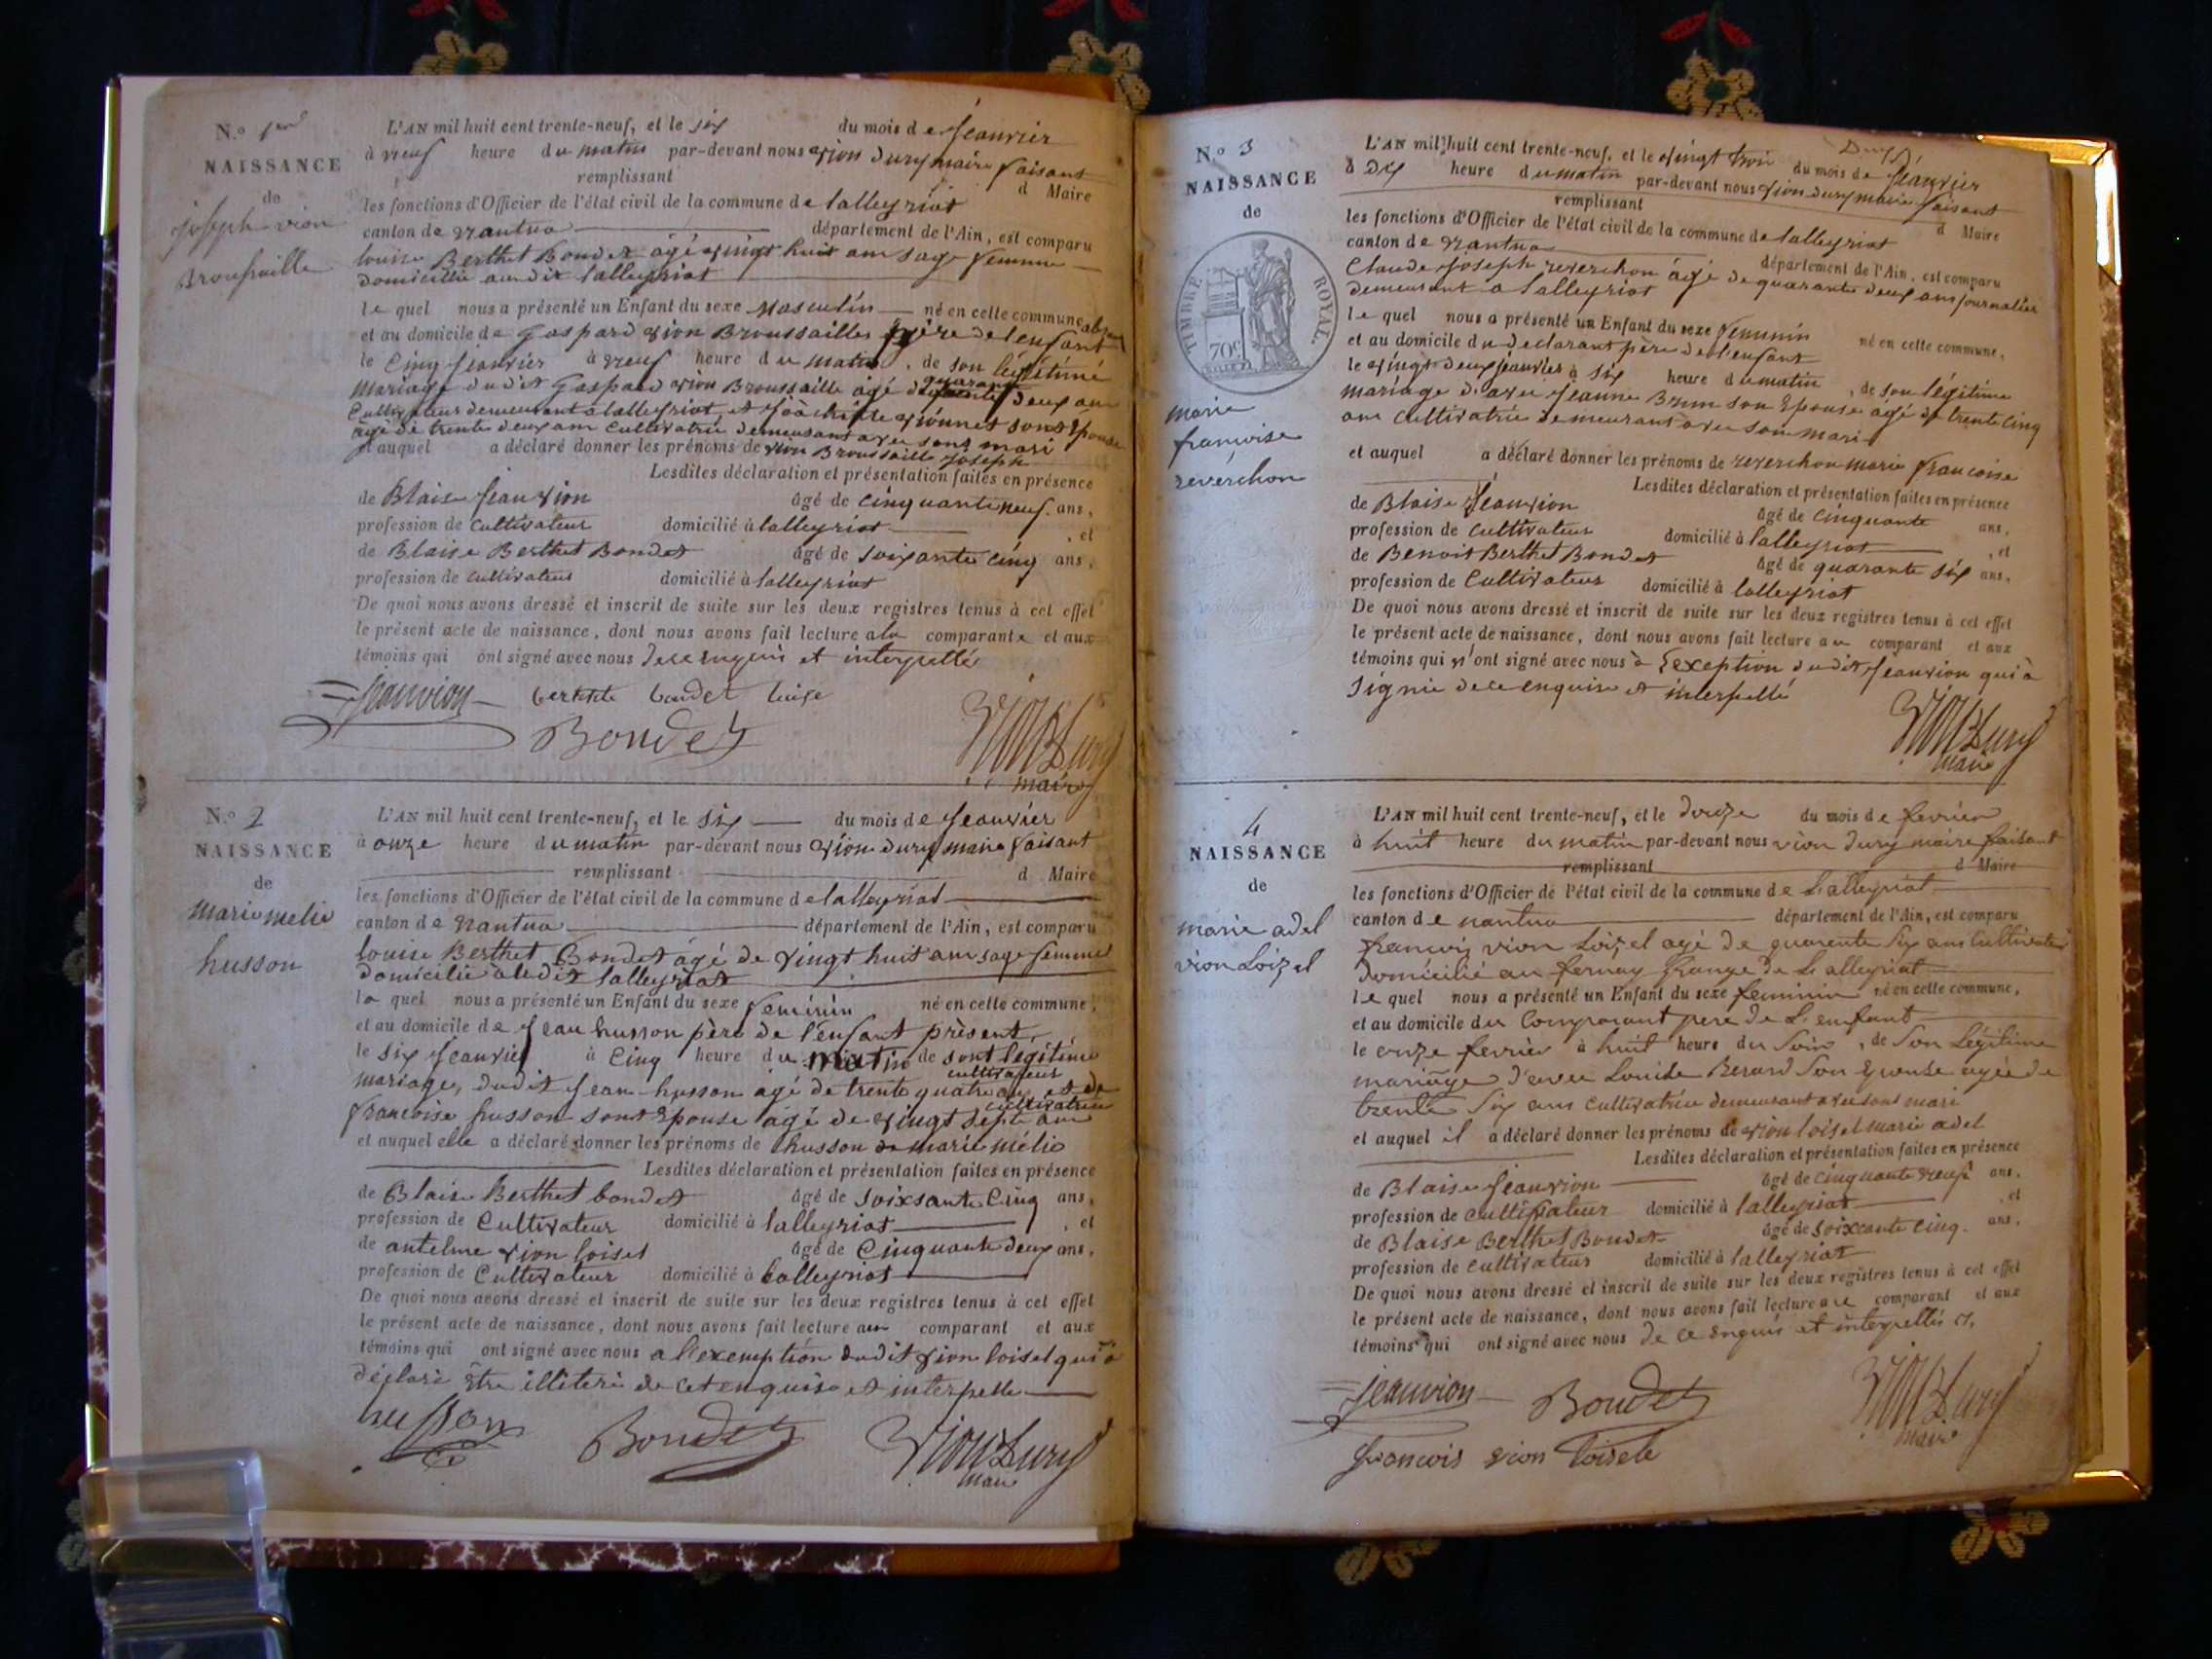 N.º 1er
NAISSANCE
de
joseph vion
Broussaille
L'AN mil huit cent trente-neuf, et le six du mois de Jeanvier
à neuf heure du matin par-devant nous vion dury maire faisant
remplissant d Maire
les fonctions d'Officier de l'état civil de la commune de lalleyriat
canton de nantua département de l'Ain, est comparu
louise Berthet Bondet âgé vingt huit ans sage femme
domicillié audit lalleyriat
le quel nous a présenté un Enfant du sexe Masculin né en cette commune
et au domicile de Gaspard vion Broussailles père de lenfant
le Cinq Jeanvier à neuf heure du matin, de son légitime
mariage dudit Gaspard vion Broussaille âgé de quarante deux ans
Cultivateur demeurant a lalleyriat, et vionnet sont Epouse
âgé de trente deux ans Cultivatrice demeurant avec sont mari
et auquel a déclaré donner les prénoms de vion Broussaille Joseph
Lesdites déclaration et présentation faites en présence
de Blaise Jeanvion âgé de cinquante neuf ans,
profession de Cultivateur domicilié à lalleyriat, et
de Blaise Berthet Bondet âgé de soixante cinq ans,
profession de cultivateur domicilié à lalleyriat
De quoi nous avons dressé et inscrit de suite sur les deux registres tenus à cet effet
le présent acte de naissance, dont nous avons fait lecture a la comparante et aux
témoins qui ont signé avec nous de ce enquis et interpellé
Jeanvion Bertete bondet luise
Bondet
Vion Dury
maire
N.º 2
NAISSANCE
de
marie melie
husson
L'AN mil huit cent trente-neuf, et le six du mois de Jeanvier
à onze heure du matin par-devant nous vion dury maire faisant
remplissant d Maire
les fonctions d'Officier de l'état civil de la commune de lalleyriat
canton de nantua département de l'Ain, est comparu
louise Berthet Bondet âgé de vingt huit ans sage femme
domicilié a ledit lalleyriat
la quel nous a présenté un Enfant du sexe feminin né en cette commune,
et au domicile de Jean husson père de l'enfant présent,
le six Jeanvier à Cinq heure du matin de sont legitime
cultivateur
mariage, dudit Jean husson âgé de trente quatre ans, et de
cultivatrice
francoise husson sont Epouse âgé de vingt sept ans
et auquel elle a déclaré donner les prénoms de husson marie mélie
Lesdites déclaration et présentation faites en présence
de Blaise Berthet bondet âgé de soixsante Cinq ans,
profession de Cultivateur domicilié à lalleyriat, et
de antelme vion loisel âgé de Cinquante deux ans,
profession de Cultivateur domicilié à lalleyriat
De quoi nous avons dressé et inscrit de suite sur les deux registres tenus à cet effet
le présent acte de naissance, dont nous avons fait lecture au comparant et aux
témoins qui ont signé avec nous a l'exemption dudit vion loisel qui a
déclaré être illiteré de cet enquise et interpelle
husson Bondet Vion Dury
maire
N.º 3
NAISSANCE
de
TIMBRE ROYAL
70c
marie
francoise
reverchon
L'AN mil huit cent trente-neuf, et le vingt trois du mois de Jeanvier
à dix heure du matin par-devant nous vion dury maire faisant
remplissant d Maire
les fonctions d'Officier de l'état civil de la commune de lalleyriat
canton de nantua département de l'Ain, est comparu
Claude Joseph reverchon âgé de quarante deux ans journalier
demeurant a lalleyriat
le quel nous a présenté un Enfant du sexe femenin né en cette commune,
et au domicile du declarant père de l'enfant
le vingt deux Jeanvier à six heure du matin, de son légitime
mariage d'avec Jeanne Brun son Epouse âgé de trente cinq
ans cultivatrice demeurant avec son mari
et auquel a déclaré donner les prénoms de reverchon marie francoise
Lesdites déclaration et présentation faites en présence
de Blaise Jeanvion âgé de cinquante ans,
profession de cultivateur domicilié à lalleyriat, et
de Benoit Berthet Bondet âgé de quarante six ans,
profession de Cultivateur domicilié à lalleyriat
De quoi nous avons dressé et inscrit de suite sur les deux registres tenus à cet effet
le présent acte de naissance, dont nous avons fait lecture au comparant et aux
témoins qui n'ont signé avec nous à l'exeption dudit Jeanvion qui à
signié de ce enquise et interpellé
Vion Dury
maire
4
NAISSANCE
de
marie adel
vion Loizel
L'AN mil huit cent trente-neuf, et le douze du mois de fevrier
à huit heure du matin par-devant nous vion dury maire faisant
remplissant d Maire
les fonctions d'Officier de l'état civil de la commune de Lalleyriat
canton de nantua département de l'Ain, est comparu
francois vion Loizel agé de quarente six ans Cultivateur
domicilié au fernay Grange de Lalleyriat
le quel nous a présenté un Enfant du sexe feminin né en cette commune,
et au domicile du Comparant pere de L'enfant
le onze fevrier à huit heure du soir, de son Légitime
mariage d'avec Louise Berard son Epouse agée de
trente six ans cultivatrice demeurant avec sont mari
et auquel il a déclaré donner les prénoms de vion loisel marie adel
Lesdites déclaration et présentation faites en présence
de Blaise Jeanvion âgé de cinquante neuf ans,
profession de cultivateur domicilié à lalleyriat, et
de Blaise Berthet Bondet âgé de soixcante cinq ans,
profession de cultivateur domicilié à lalleyriat
De quoi nous avons dressé et inscrit de suite sur les deux registres tenus à cet effet
le présent acte de naissance, dont nous avons fait lecture au comparant et aux
témoins qui ont signé avec nous de ce enquis et interpellés
Jeanvion Bondet Vion Dury
maire
francois vion Loisele